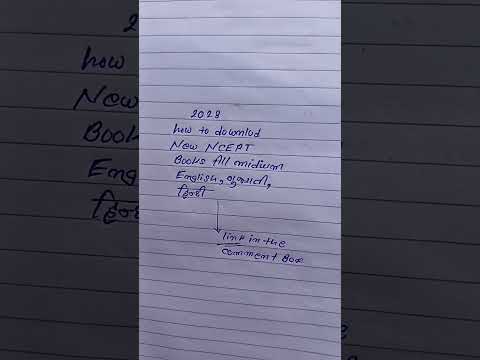 2023
how to downlod
New NCEPT
Books All midium
English, ગુજરાતી,
हिन्दी
link in the
comment Box